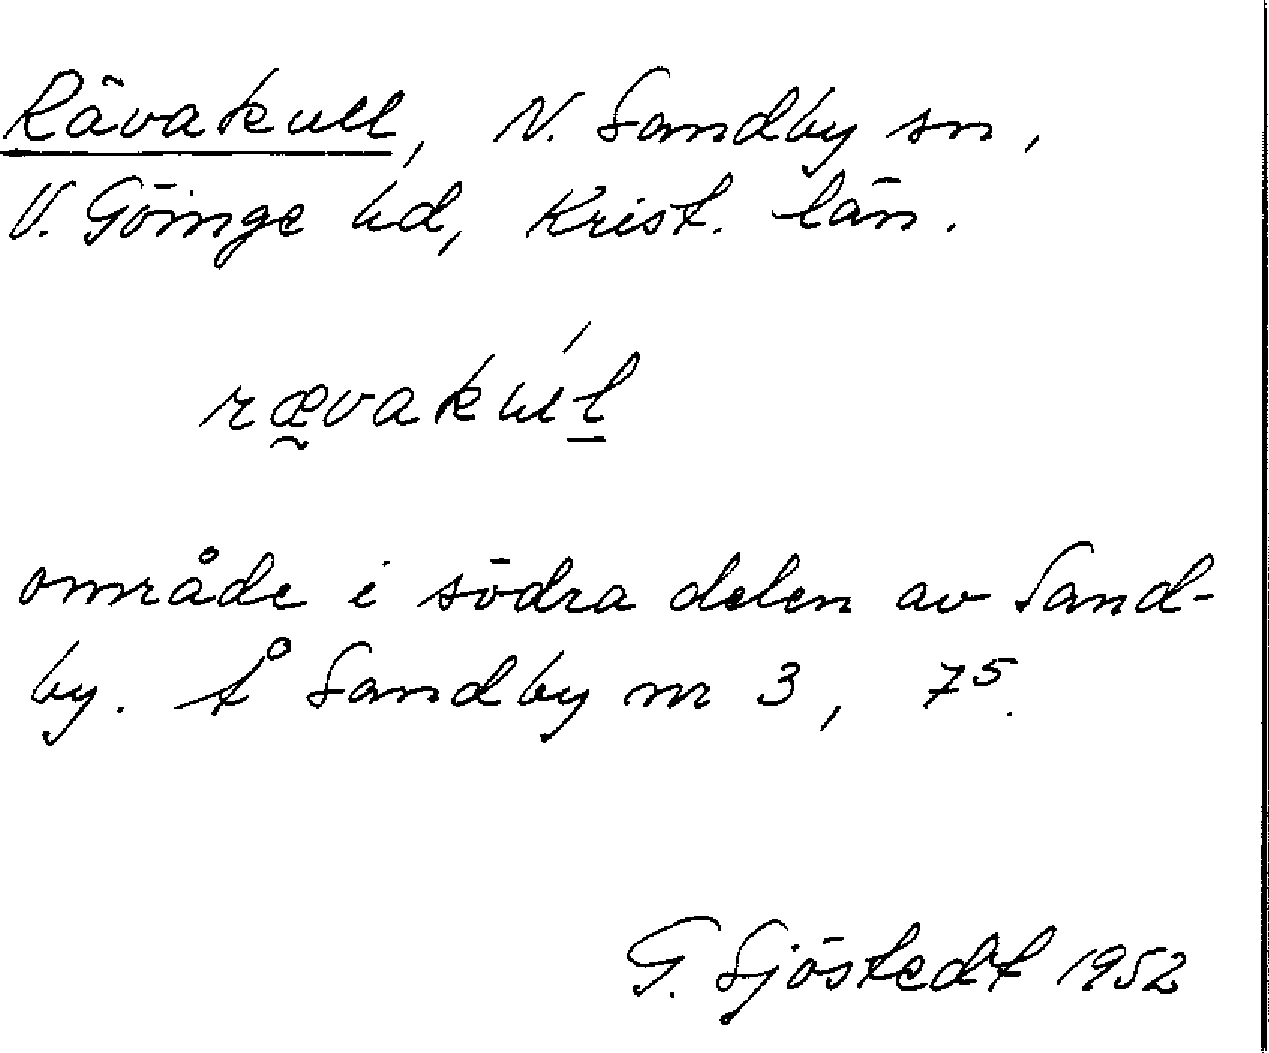 Rävakull, N. Sandby sn,
V. Göinge hd, Krist. län.
ræ̰vakúl̲
område i södra delen av Sand-
by. Å Sandby nr 3, 7⁵.
G. Sjöstedt 1952